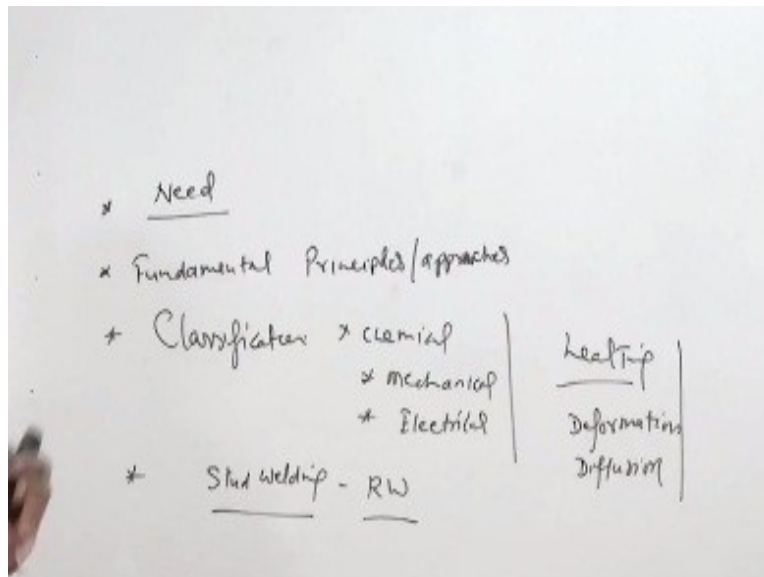 * Need
* Fundamental Principles/approaches
* Classification * chemical
* mechanical
* Electrical
heating
Deformation
Diffusion
* Stud welding - RW